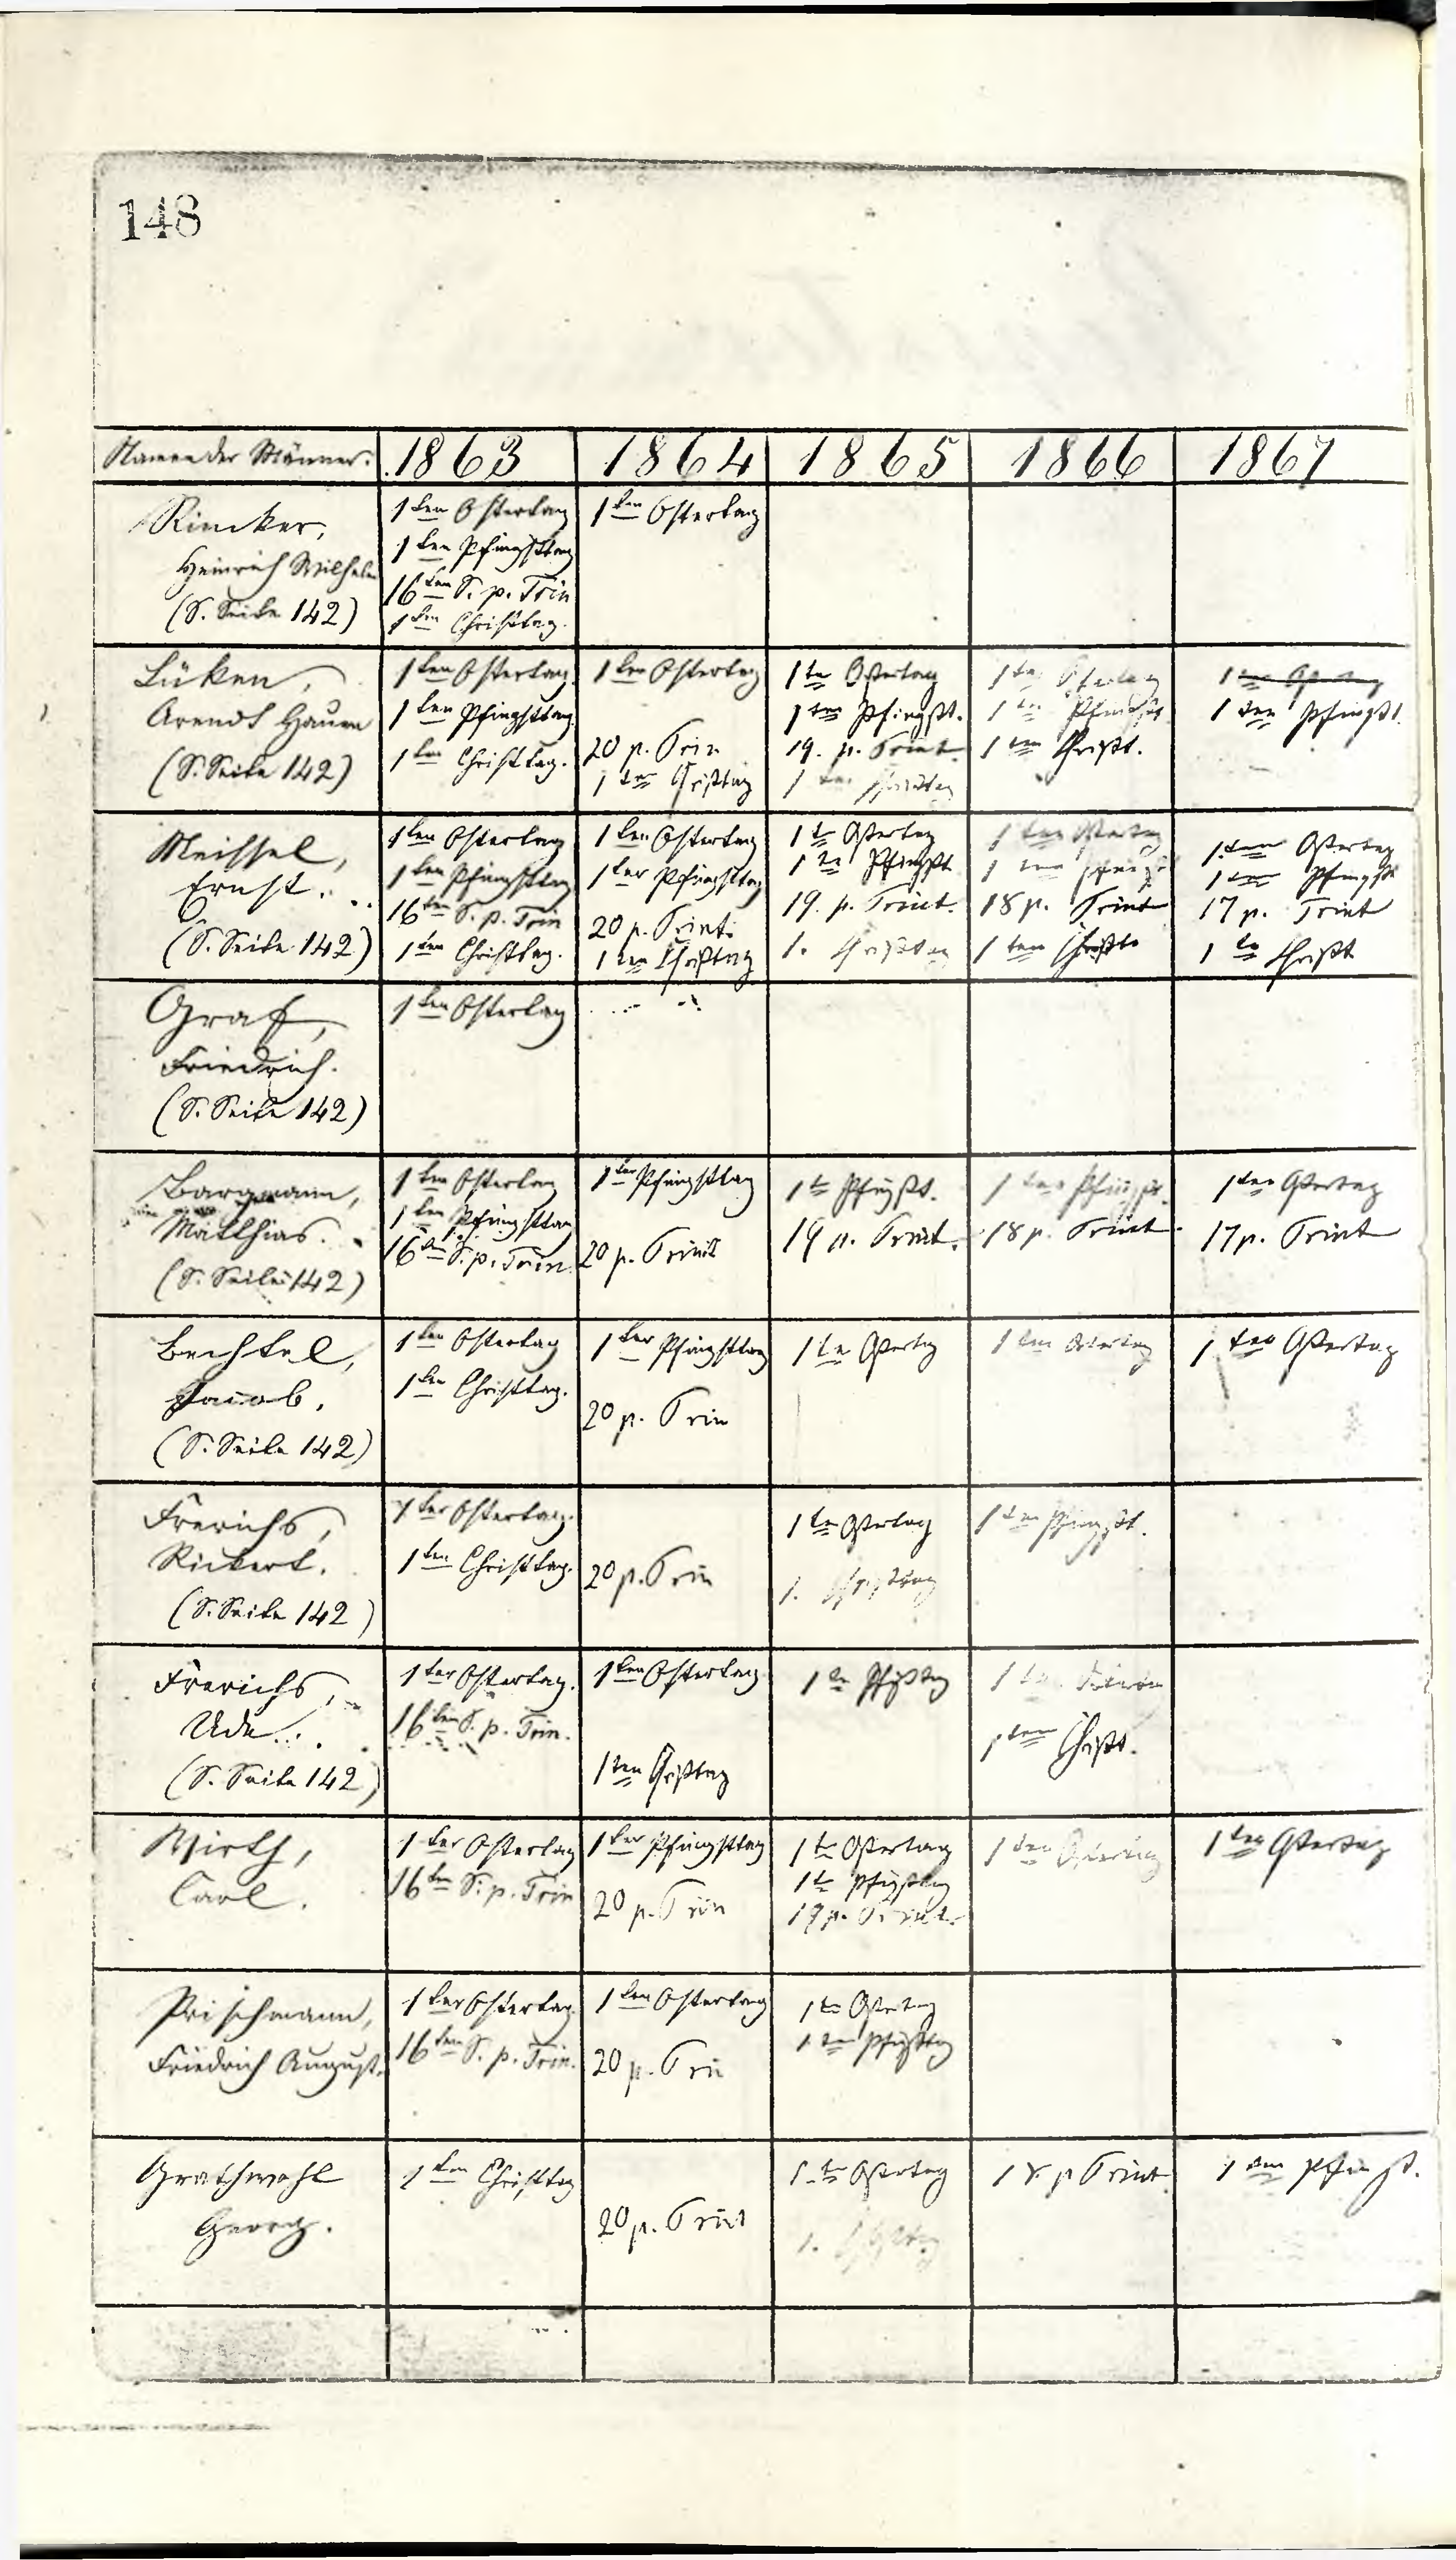 148
Namen der Männer. 1863 1864 1865 1866 1867
Rincker,
Heinrich Wilhelm
(S. Seite 142)
1ten Ostertag
1ten Pfingsttag
16ten S. p. Trin
1ten Christtag.
1ten Ostertag
Lüken,
Arendt Hauen
(S. Seite 142)
1ten Ostertag.
1ten Pfingsttag
1ten Christtag.
1ten Ostertag
20 p. Trin
1ten Christtag
1te Ostertag
1ten Pfingst.
19. p. Trint.
1ten Christtag
1ten Ostertag
1ten Pfingst
1ten Christ.
1ten Ostertag
1ten Pfingst.
Meissel,
Ernst.
(S. Seite 142)
1ten Ostertag
1ten Pfingsttag
16ten S. p. Trin
1ten Christtag.
1ten Ostertag
1ter Pfingsttag
20 p. Trint.
1ten Christtag
1te Ostertag
1te Pfingst
19. p. Trint.
1. Christtag
1ten Ostertag
1ten Pfingst
18 p. Trint
1ten Christt.
1ten Ostertag
1ten Pfingst
17 p. Trint
1te Christ
Graf,
Friedrich.
(S. Seite 142)
1ten Ostertag
Bargmann,
Matthias.
(S. Seite 142)
1ten Ostertag
1ten Pfingsttag
16ten S. p. Trin.
1ter Pfingsttag
20 p. Trinit
1te Pfingst.
19 p. Trint.
1ten Pfingst.
18 p. Trint
1ten Ostertag
17 p. Trint
Bechtel,
Jacob.
(S. Seite 142)
1ten Ostertag
1ten Christtag.
1ter Pfingsttag
20 p. Trin
1te Ostertag
1ten Ostertag
1ten Ostertag
Frerichs,
Rickert.
(S. Seite 142)
1ter Ostertag.
1ten Christtag.
20 p. Trin
1te Ostertag
1. Christtag
1ten Pfingst.
Frerichs,
Ude.
(S. Seite 142)
1ter Ostertag.
16ten S. p. Trin.
1ten Ostertag
1ten Christtag
1te Pfingsttag
1ten Christ.
Wirth,
Carl.
1ter Ostertag
16ten S. p. Trin
1ter Pfingsttag
20 p. Trin
1te Ostertag
1te Pfingsttag
19 p. Trint.
1ten Ostertag
1ten Ostertag
Prischmann,
Friedrich August.
1ter Ostertag
16ten S. p. Trin.
1ten Ostertag
20 p. Trin
1te Ostertag
1ten Pfingsttag
Grathwohl
Georg.
1ten Christtag
20 p. Trint
1te Ostertag
1. Christtag
18. p Trint
1ten Pfingst.